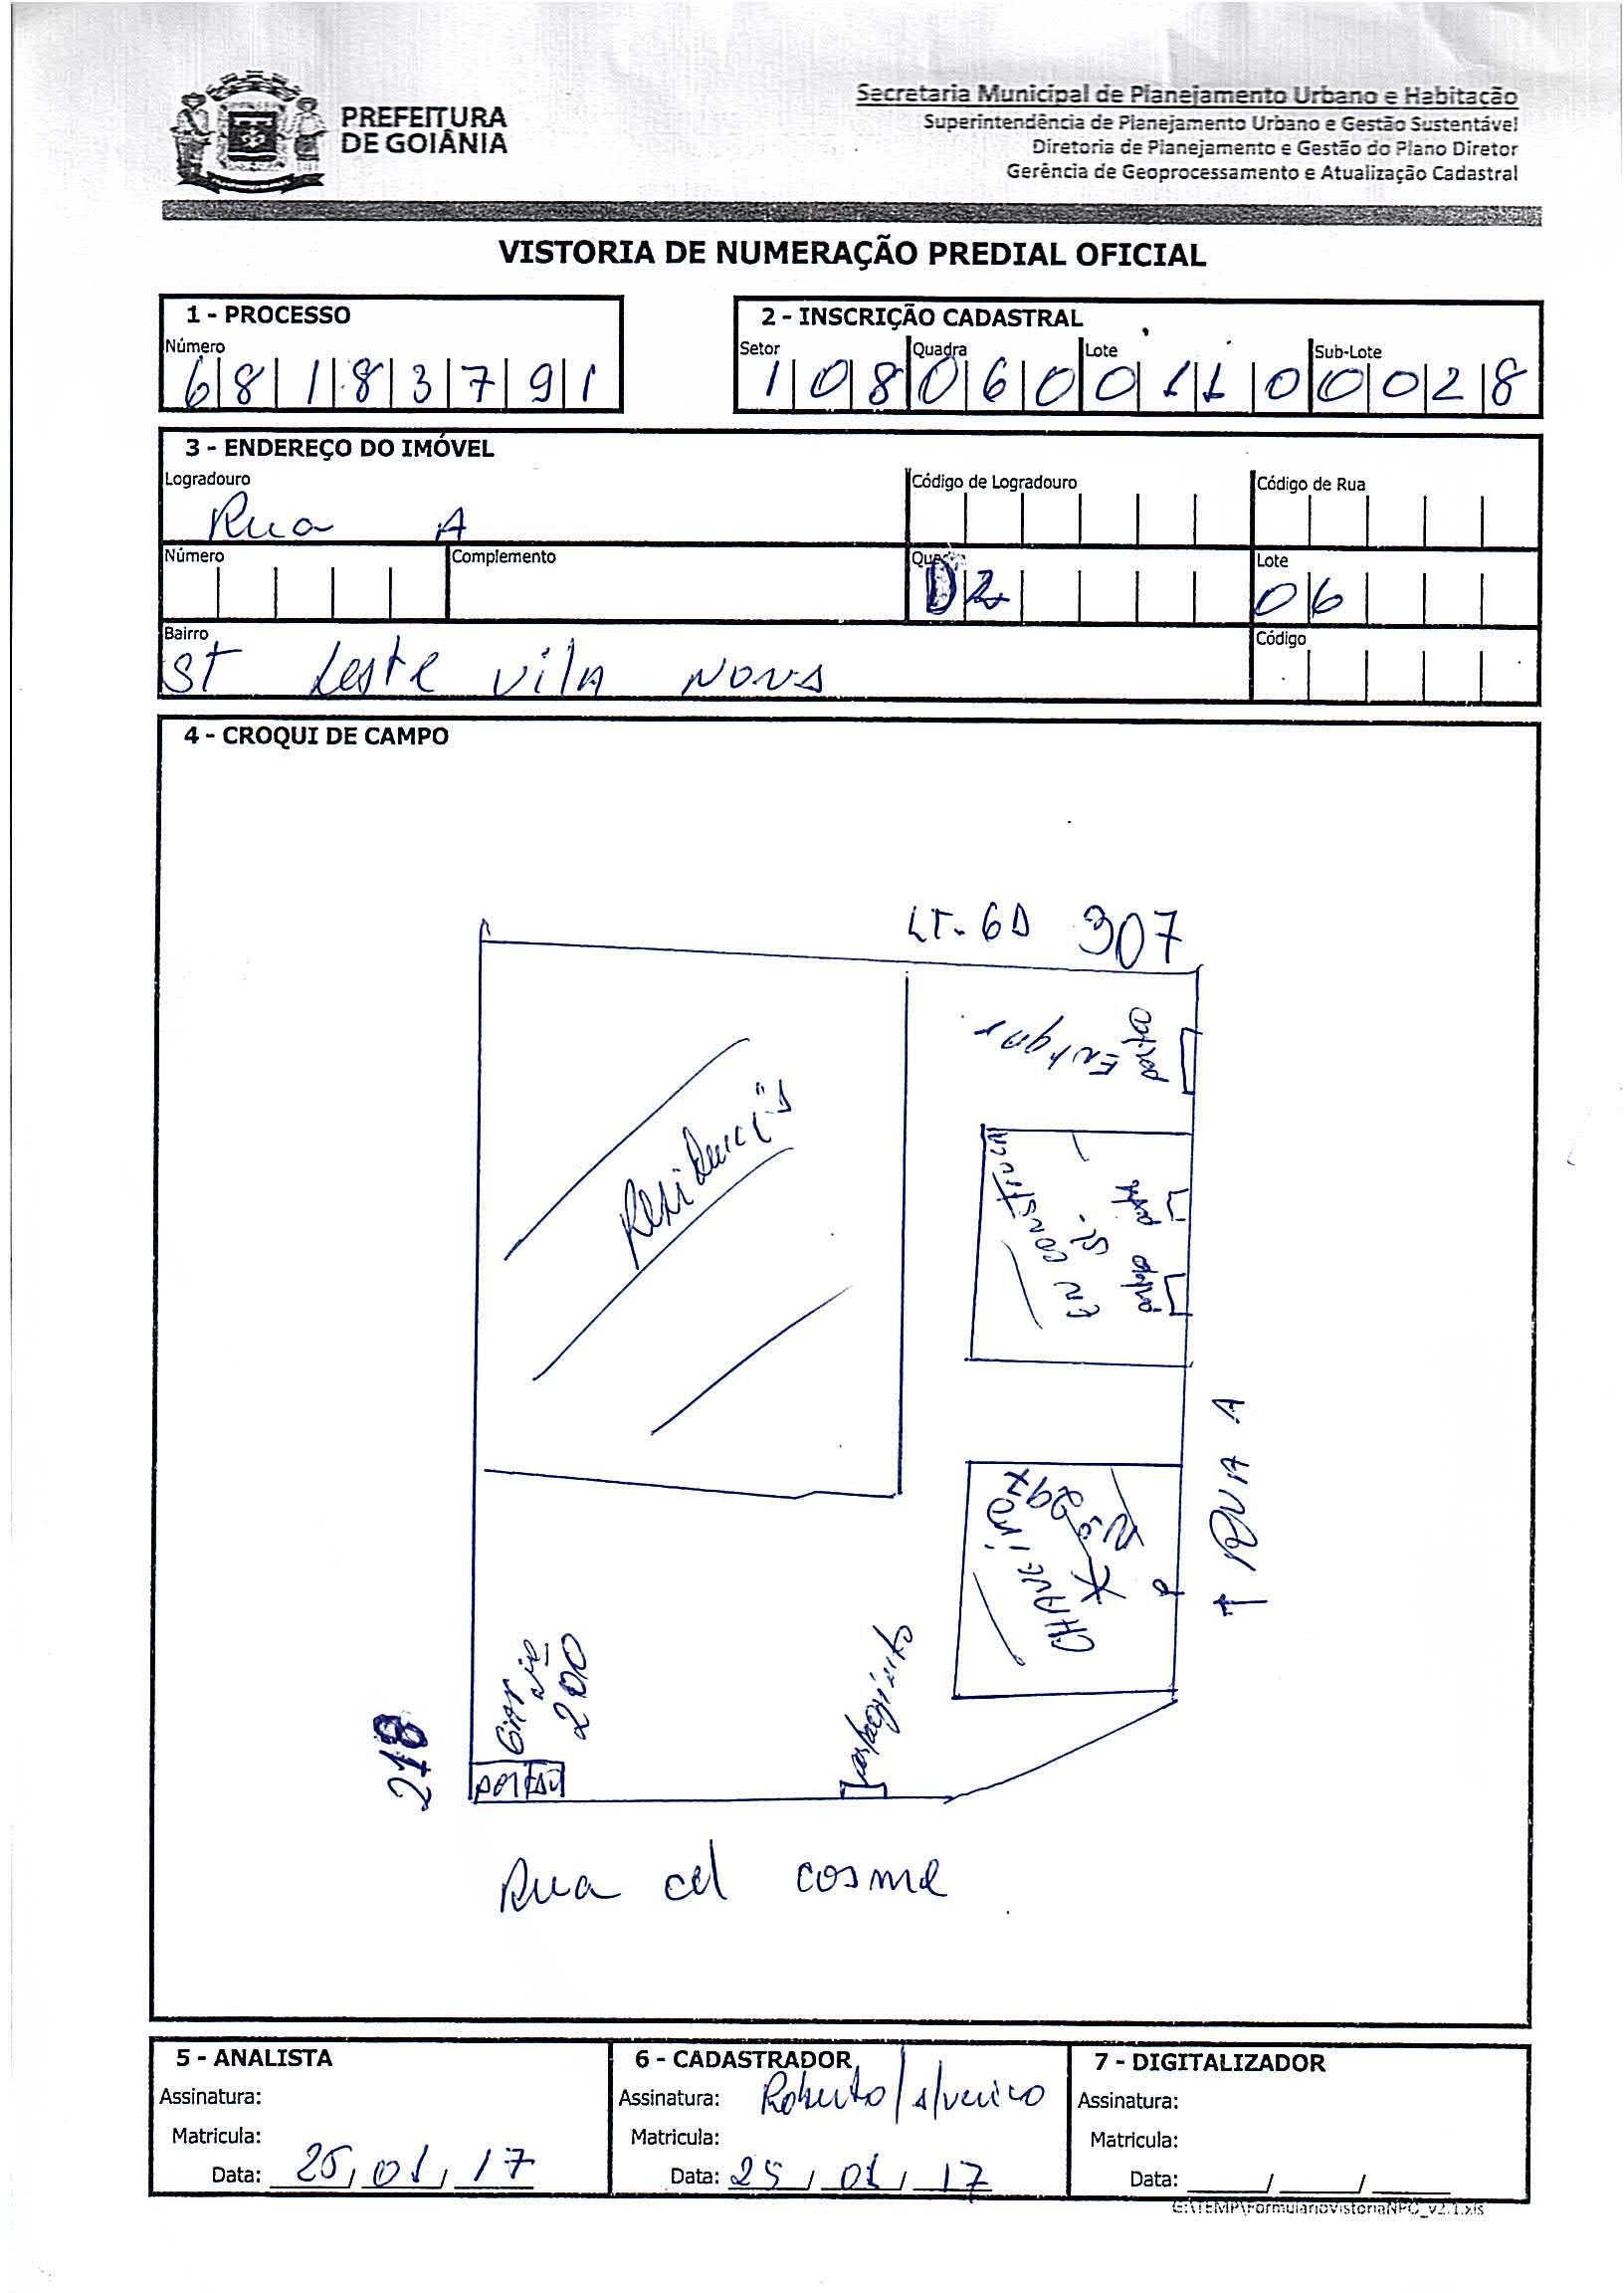 PREFEITURA
DE GOIÂNIA
Secretaria Municipal de Planejamento Urbano e Habitação
Superintendência de Planejamento Urbano e Gestão Sustentável
Diretoria de Planejamento e Gestão do Plano Diretor
Gerência de Geoprocessamento e Atualização Cadastral
VISTORIA DE NUMERAÇÃO PREDIAL OFICIAL
1 - PROCESSO
Número
6 8 1 8 3 7 9 1
2 - INSCRIÇÃO CADASTRAL
Setor Quadra Lote Sub-Lote
1 0 8 0 6 0 0 1 1 0 0 0 2 8
3 - ENDEREÇO DO IMÓVEL
Logradouro Código de Logradouro Código de Rua
Rua A
Número Complemento Lote
D 2 06
Bairro Código
ST Leste Vila Nova
4 - CROQUI DE CAMPO
LT. 6D 307
portão
Residenci's
porta
EN CONSTRUCA
SL.
RUA A
CHAVEIRO
Nº 297
GAR
Nº
200
218
PORTÃO
Rua cel cosme
5 - ANALISTA
Assinatura:
Matricula:
Data: 25/01/17
6 - CADASTRADOR
Assinatura: Roberto/
Matricula:
Data: 25/01/17
7 - DIGITALIZADOR
Assinatura:
Matricula:
Data: ____/____/____
G:\TEMP\FormularioVistoriaNPO_v2.1.xls